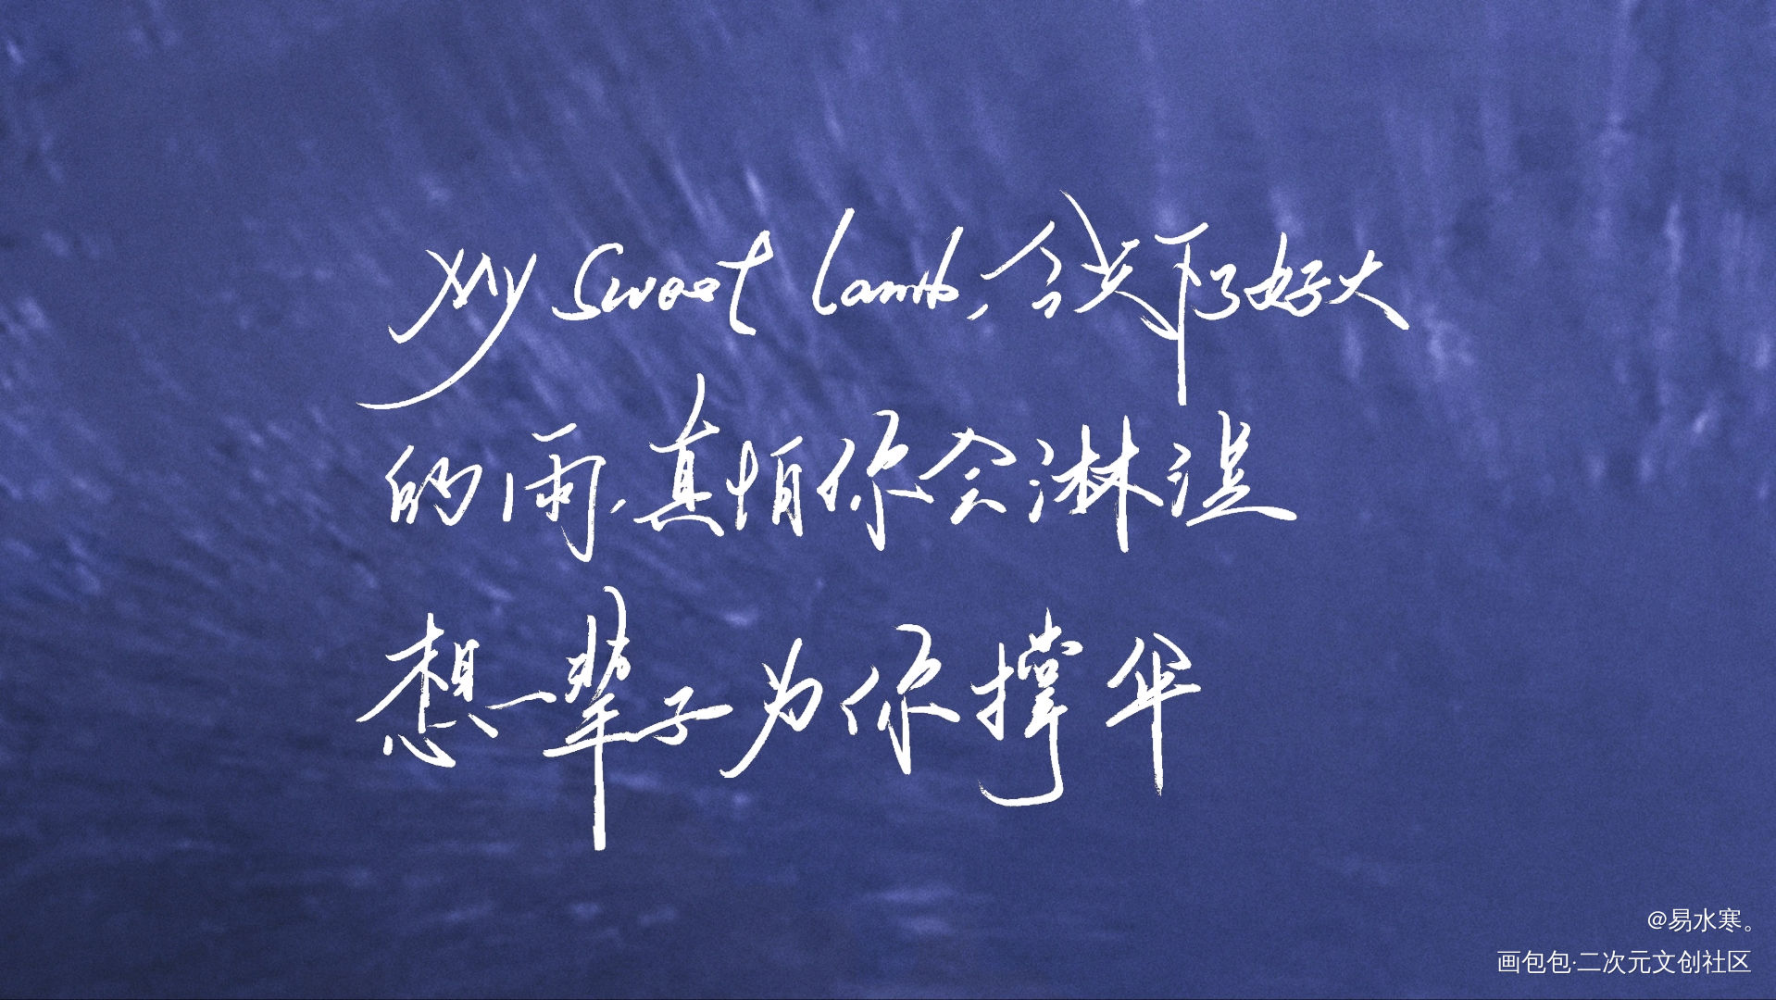 My Sweet lamb,今天下了好大
的雨,真怕你会淋湿
想一辈子为你撑伞
@易水寒。
画包包·二次元文创社区